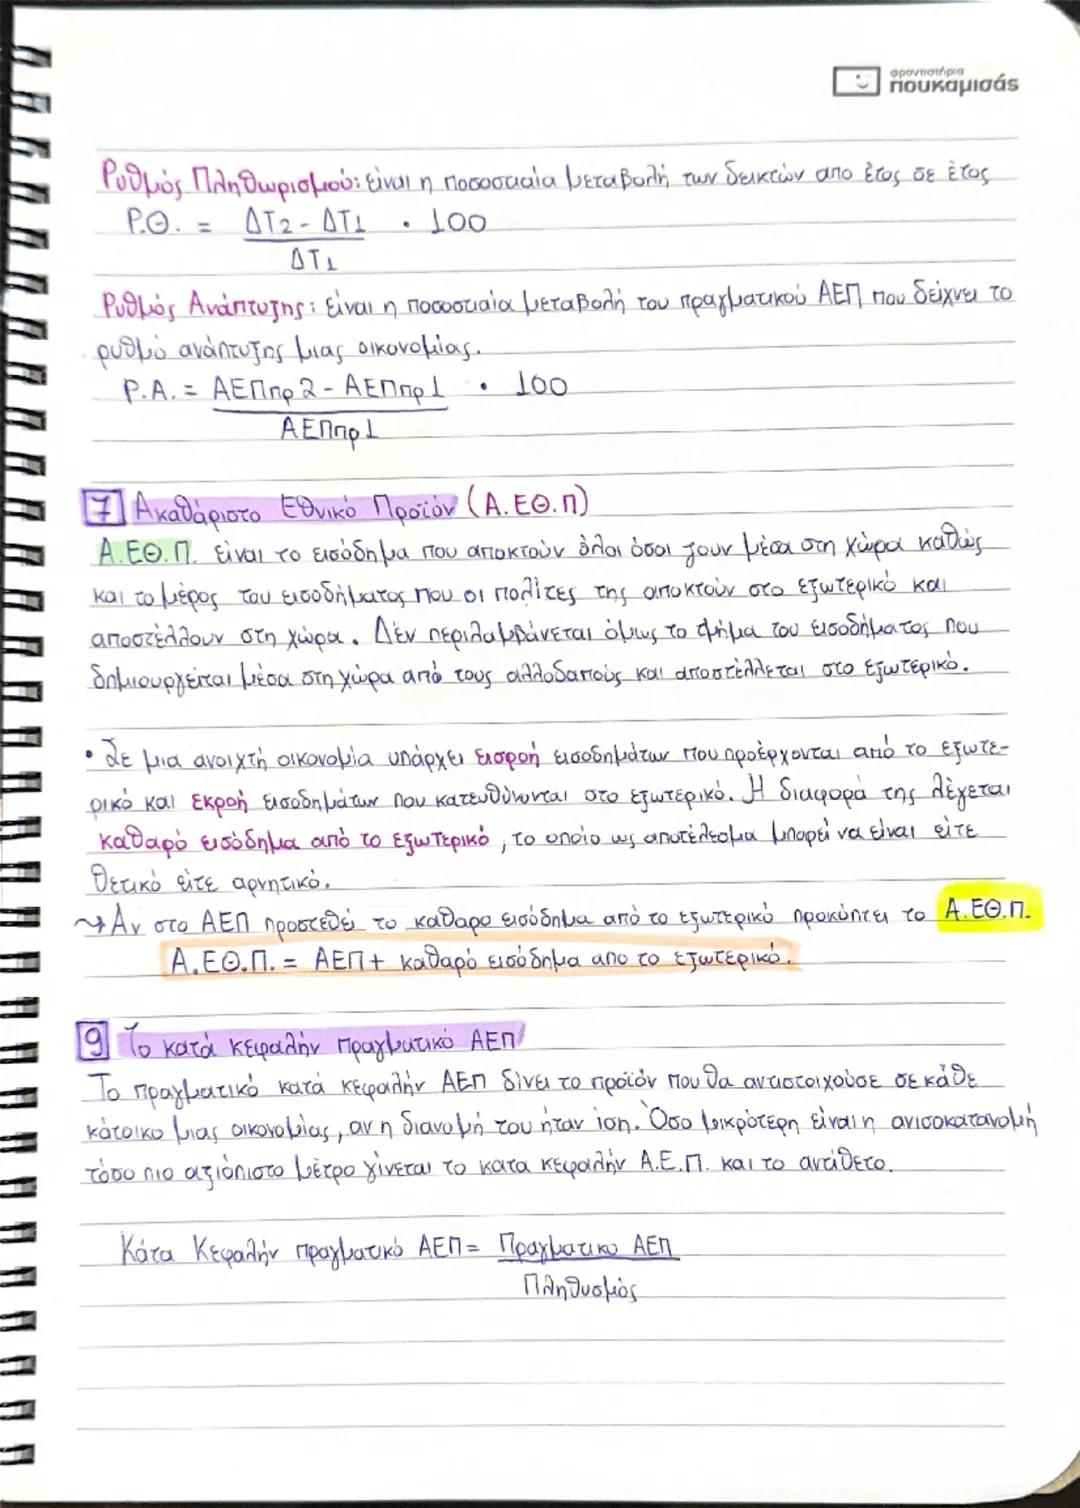 φροντιστήρια
πουκαμισάς
Ρυθμός Πληθωρισμού: είναι η ποσοστιαία μεταβολή των δεικτών απο έτος σε έτος
Ρ.Θ. = ΔΤ2 - ΔΤ1 · 100
ΔΤ1
Ρυθμός Ανάπτυξης: είναι η ποσοστιαία μεταβολή του πραγματικού ΑΕΠ που δείχνει το
ρυθμό ανάπτυξης μιας οικονομίας.
Ρ.Α. = ΑΕΠπρ2 - ΑΕΠπρ1 · 100
ΑΕΠπρ1
7 Ακαθάριστο Εθνικό Προϊόν (Α.ΕΘ.Π)
Α.ΕΘ.Π. είναι το εισόδημα που αποκτούν όλοι όσοι ζουν μέσα στη χώρα καθώς
και το μέρος του εισοδήματος που οι πολίτες της αποκτούν στο εξωτερικό και
αποστέλλουν στη χώρα. Δέν περιλαμβάνεται όμως το τμήμα του εισοδήματος που
δημιουργείται μέσα στη χώρα από τους αλλοδαπούς και αποστέλλεται στο εξωτερικό.
• Σε μια ανοιχτή οικονομία υπάρχει εισροή εισοδημάτων που προέρχονται από το εξωτε-
ρικό και εκροή εισοδημάτων που κατευθύνονται στο εξωτερικό. Η διαφορά της λέγεται
καθαρό εισόδημα από το εξωτερικό, το οποίο ως αποτέλεσμα μπορεί να είναι είτε
θετικό είτε αρνητικό.
↝ Αν στο ΑΕΠ προστεθεί το καθαρο εισόδημα από το εξωτερικό προκύπτει το Α.ΕΘ.Π.
Α.ΕΘ.Π. = ΑΕΠ + καθαρό εισόδημα απο το εξωτερικό.
9 Το κατά κεφαλήν πραγματικό ΑΕΠ
Το πραγματικό κατά κεφαλήν ΑΕΠ δίνει το προϊόν που θα αντιστοιχούσε σε κάθε
κάτοικο μιας οικονομίας, αν η διανομή του ήταν ίση. Όσο μικρότερη είναι η ανισοκατανομή
τόσο πιο αξιόπιστο μέτρο γίνεται το κατα κεφαλήν Α.Ε.Π. και το αντίθετο.
Κάτα Κεφαλήν πραγματικό ΑΕΠ = Πραγματικο ΑΕΠ
Πληθυσμός